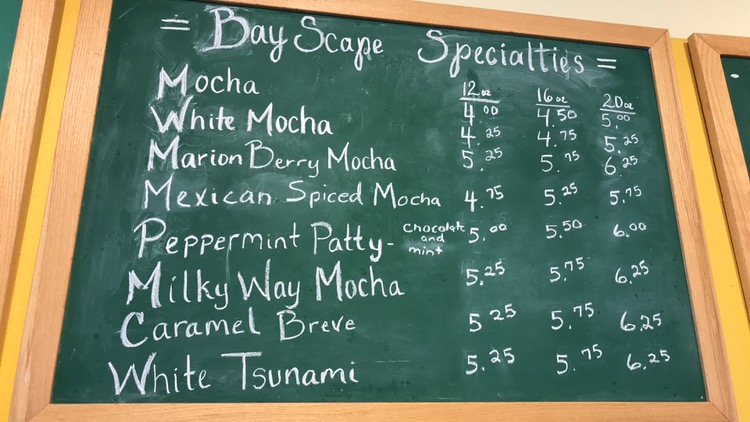 = Bay Scape Specialties =
12oz 16oz 20oz
Mocha 4.00 4.50 5.00
White Mocha 4.25 4.75 5.25
Marion Berry Mocha 5.25 5.75 6.25
Mexican Spiced Mocha 4.75 5.25 5.75
Peppermint Patty - chocolate and mint 5.00 5.50 6.00
Milky Way Mocha 5.25 5.75 6.25
Caramel Breve 5.25 5.75 6.25
White Tsunami 5.25 5.75 6.25